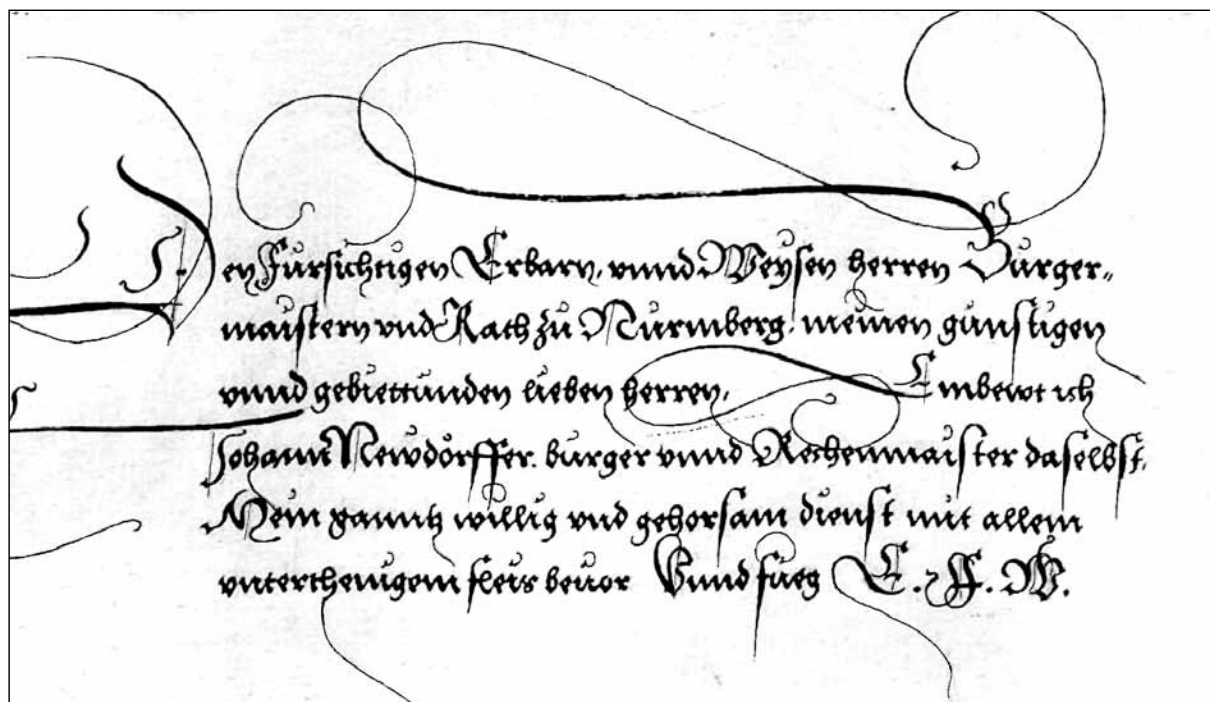 Den Fursichtigen Erbarn, vnnd Weysen herren Burger=
maistern vnd Rath zu Nurmberg, meinen gunstigen
vnnd gebiettunden lieben herren, Embewt ich
Johann Newdorffer. burger vnnd Rechenmaister daselbst,
Mein ganntz willig vnd gehorsam dienst mit allem
vnterthenigem fleis beuor Vnnd fueg E. F. W.